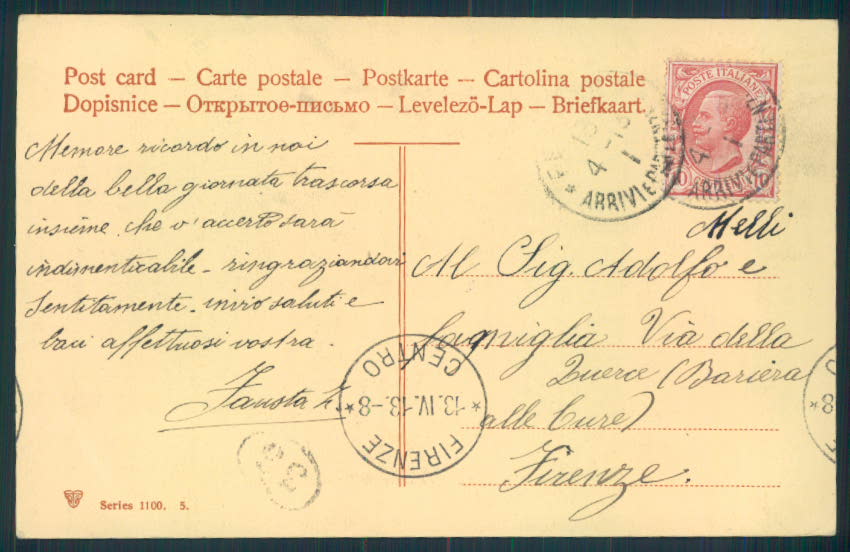 Post card – Carte postale – Postkarte – Cartolina postale
Dopisnice – Открытое-письмо – Levelező-Lap – Briefkaart.
POSTE ITALIANE
10
ARRIVI E PARTENZE
ARRIVI E PARTENZE
Memore ricordo in noi
della bella giornata trascorsa
insieme che v'accerto sarà
indimenticabile - ringraziandovi
Sentitamente - invio saluti e
baci affettuosi vostra.
Fausta
Melli
Al Sig. Adolfo e
famiglia Via della
Querce (Bariera
alle Cure)
Firenze.
FIRENZE CENTRO
* 13.IV.13.-8 *
Series 1100. 5.